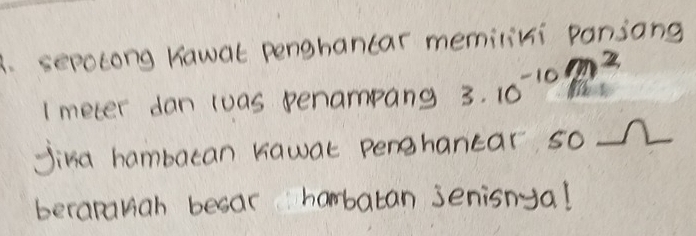 2. sepotong kawat penghantar memiliki panjang
1 meter dan luas penampang 3.10⁻¹⁰ m²
Jika hambatan kawat penghantar 50 Ω
berapakah besar hambatan jenisnya!